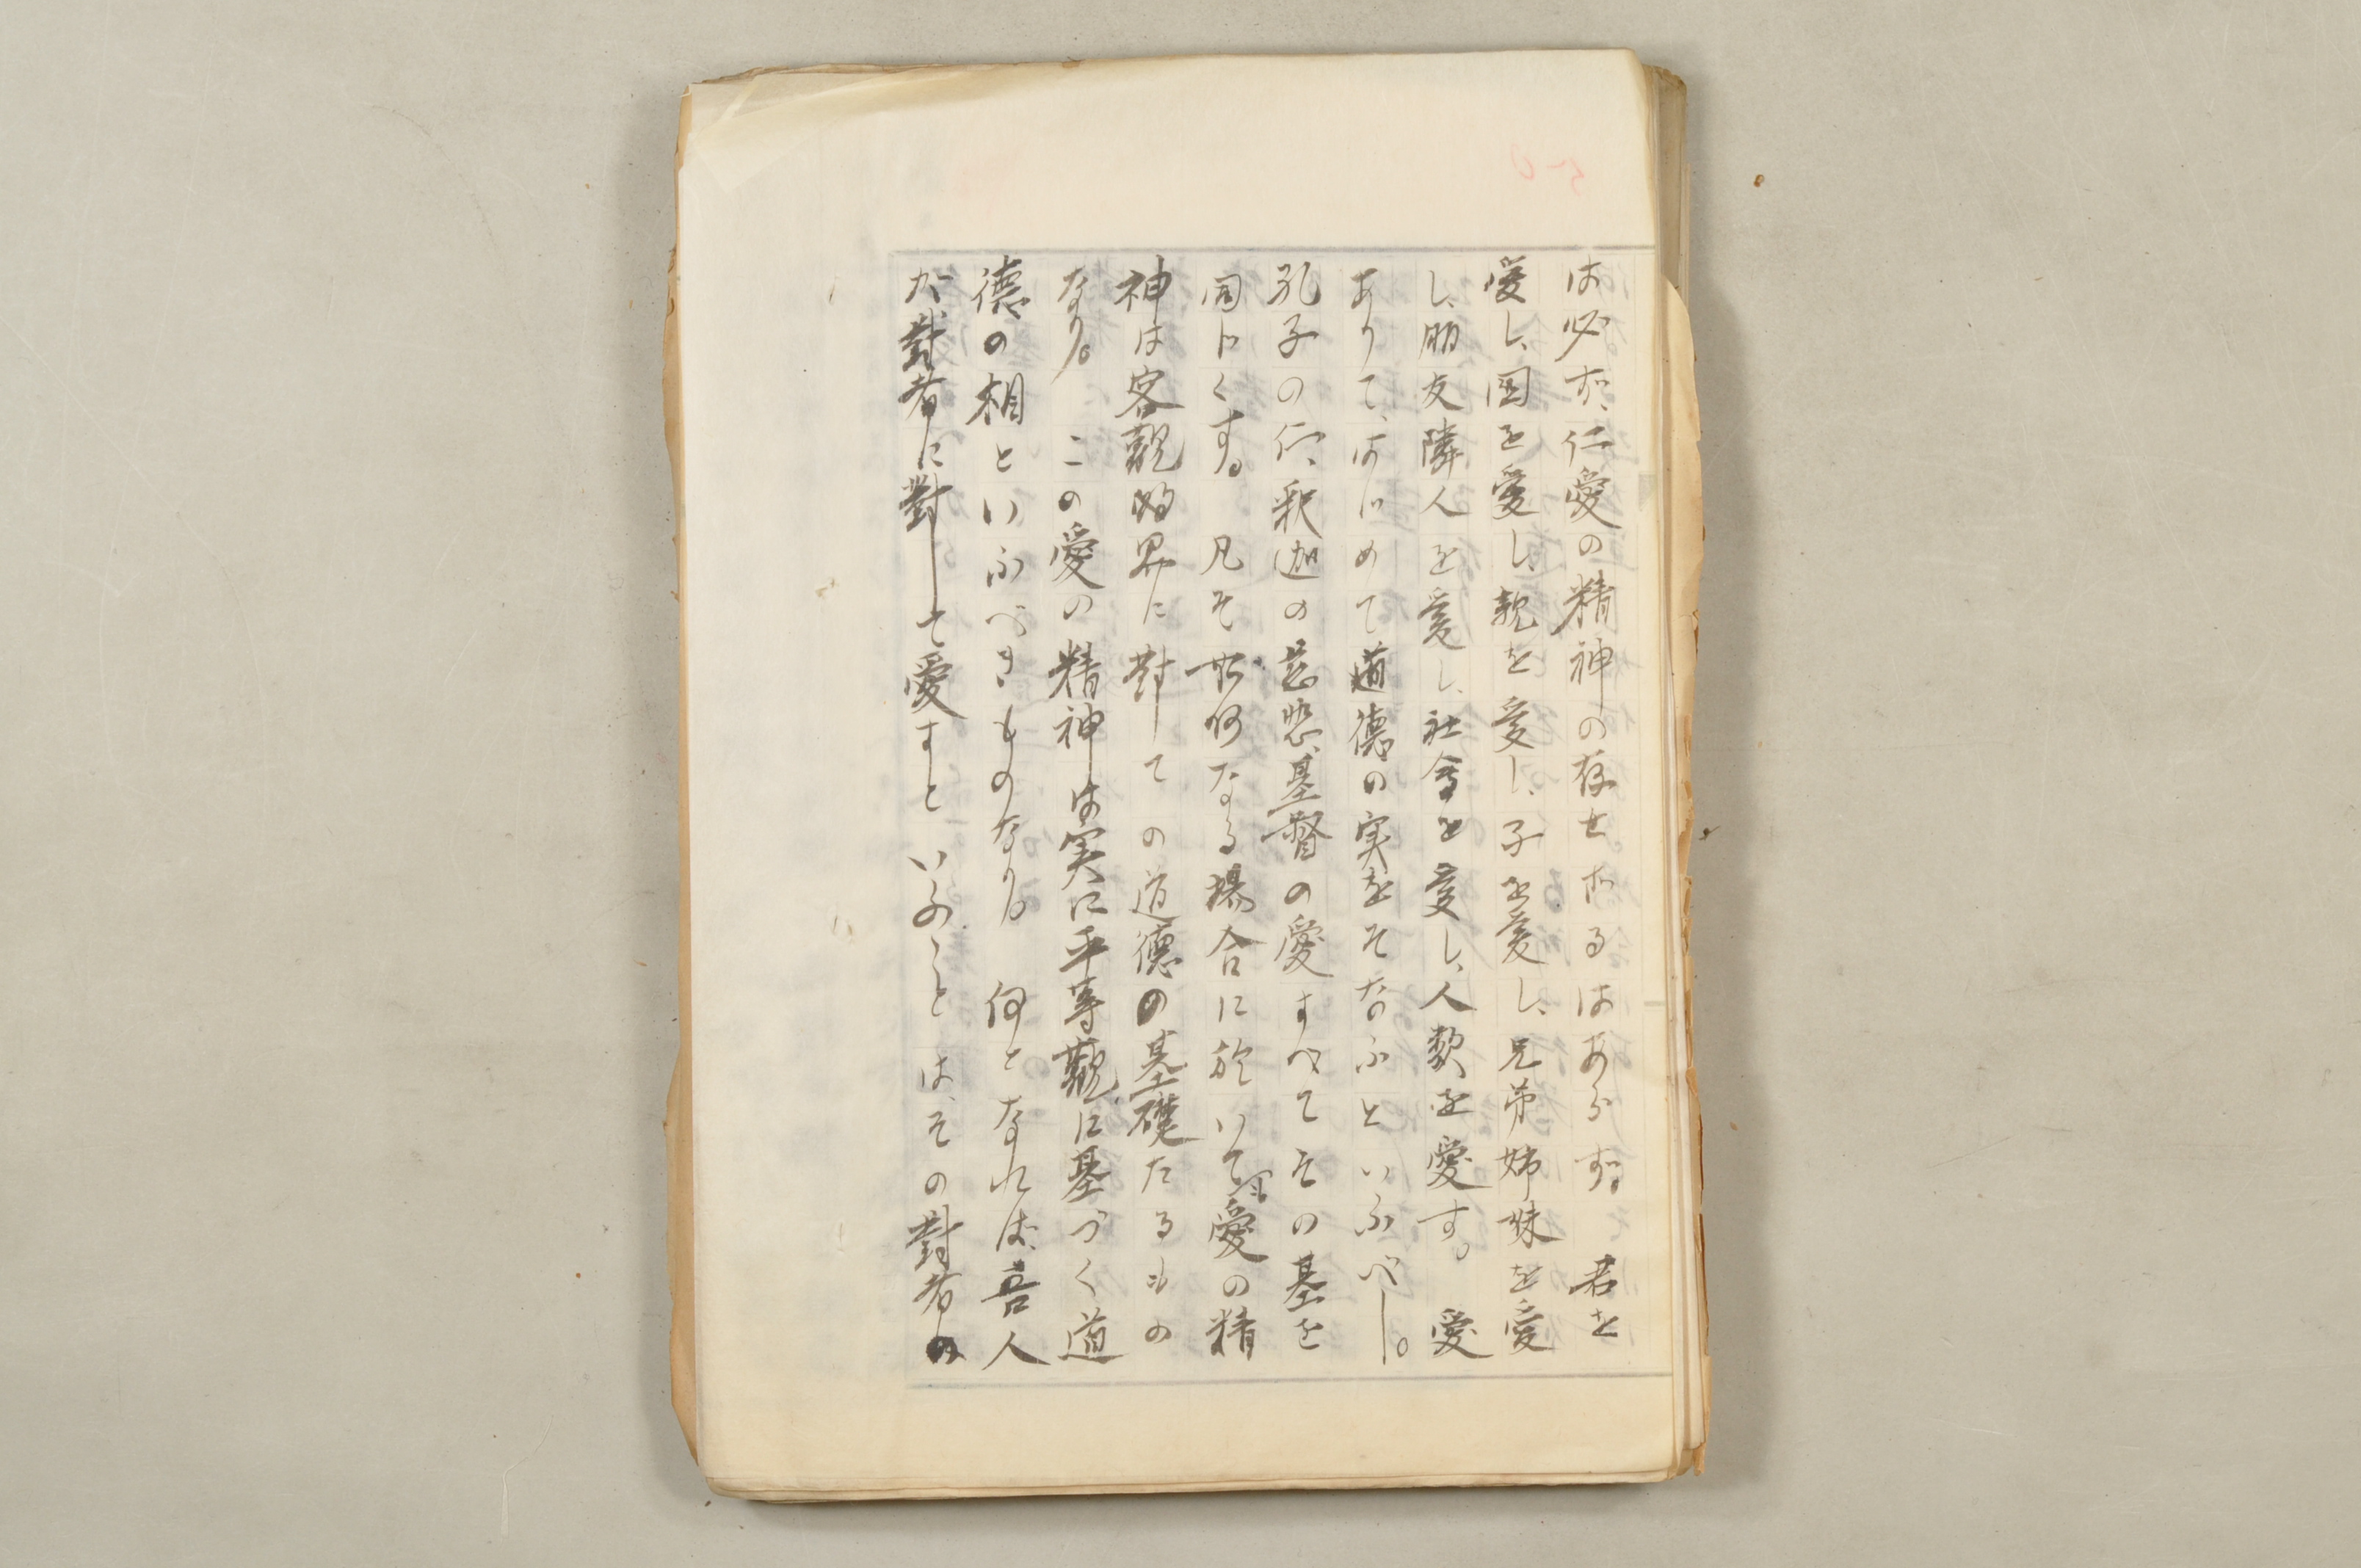 は必ず、仁愛の精神の存せざるはあらず。君を
愛し、国を愛し、親を愛し、子を愛し、兄弟姉妹を愛
し、朋友隣人を愛し、社會を愛し、人類を愛す。愛
ありて、はじめて道徳の実をそなふといふべし。
孔子の仁、釈迦の慈悲、基督の愛すべてその基を
同じくす。凡そ如何なる場合に於いて愛の精
神は客観的界に對しての道徳の基礎たるもの
なり。この愛の精神は実に平等観に基づく道
徳の相といふべきものなり。何となれば、吾人
が對者に對して愛すといふことは、その對者の